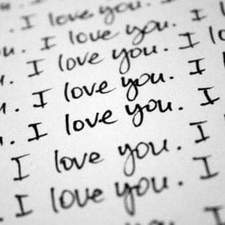 I love you. I
u. I love you. I
u. I love you. I lo
. I love you. I
. I love you. I
I love you. I
I love you. I
I